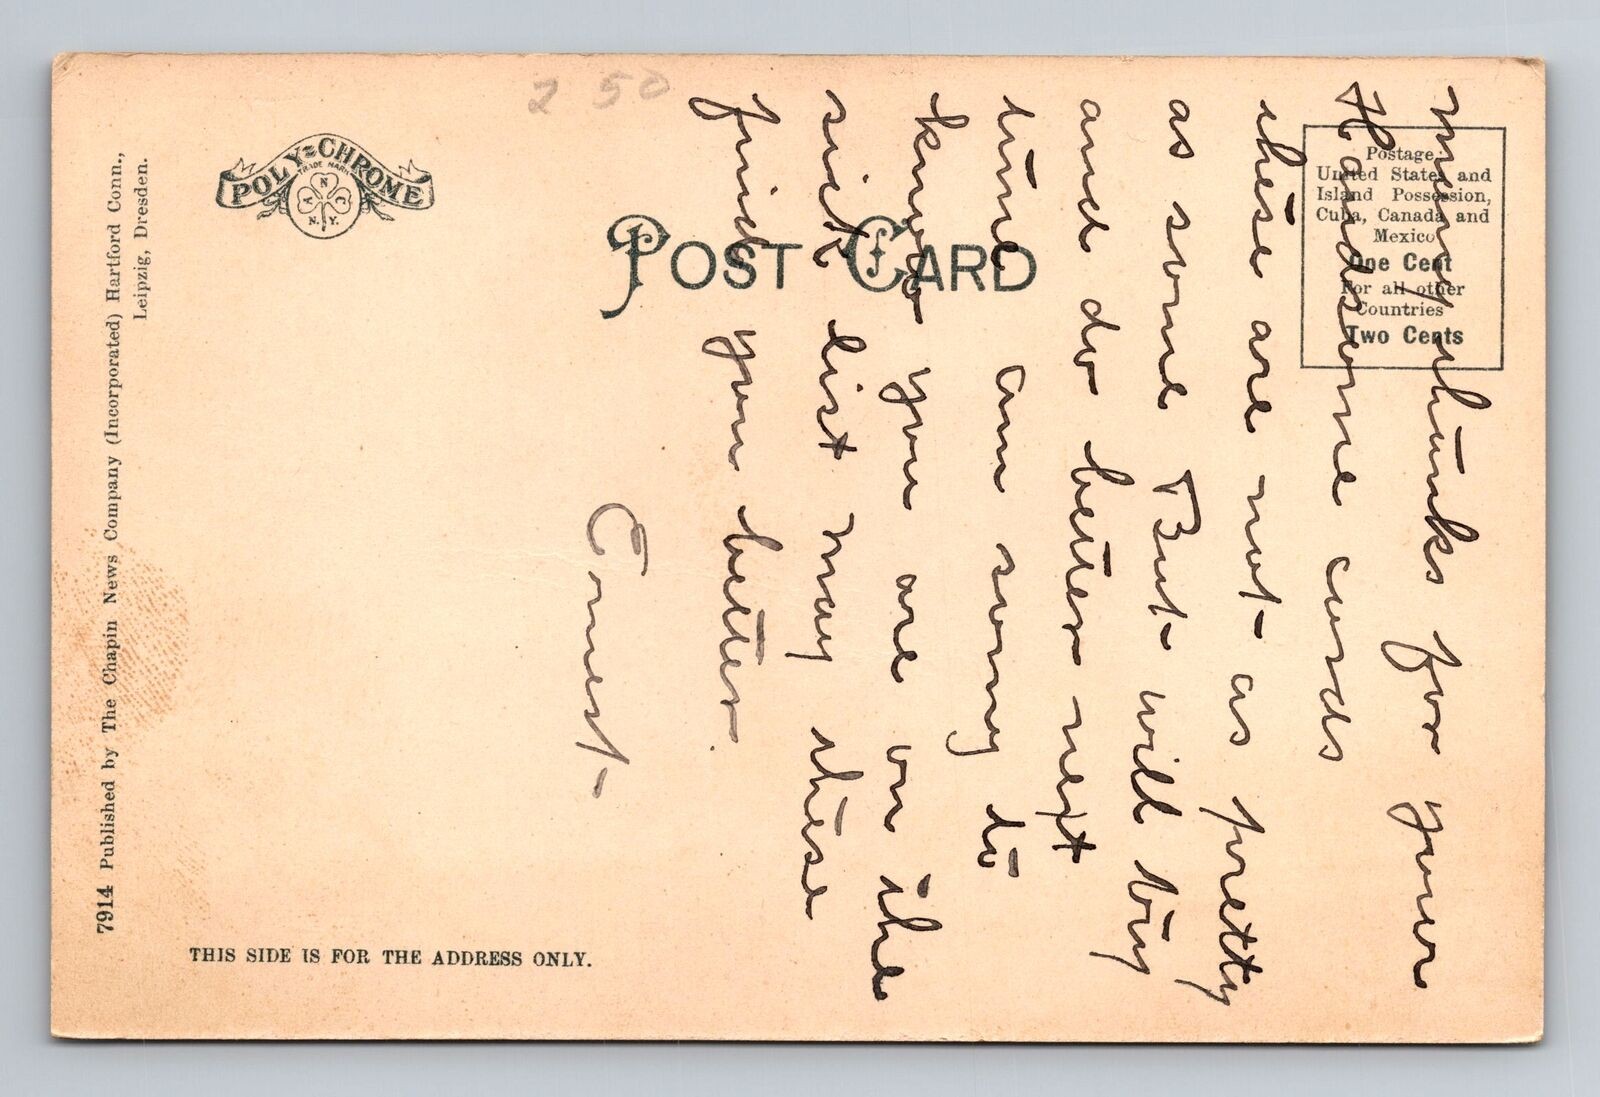 2 50
POLY-CHROME
TRADE MARK
N
A C
N.Y.
POST CARD
Postage:
United States and
Island Possession,
Cuba, Canada and
Mexico
One Cent
For all other
Countries
Two Cents
7914 Published by The Chapin News Company (Incorporated) Hartford Conn.,
Leipzig, Dresden.
THIS SIDE IS FOR THE ADDRESS ONLY.
many thanks for your
Handsome cards
these are not as pretty
as some But will try
and do better next
time am sorry to
know you are on the
sick list may these
find you better.
Ernest